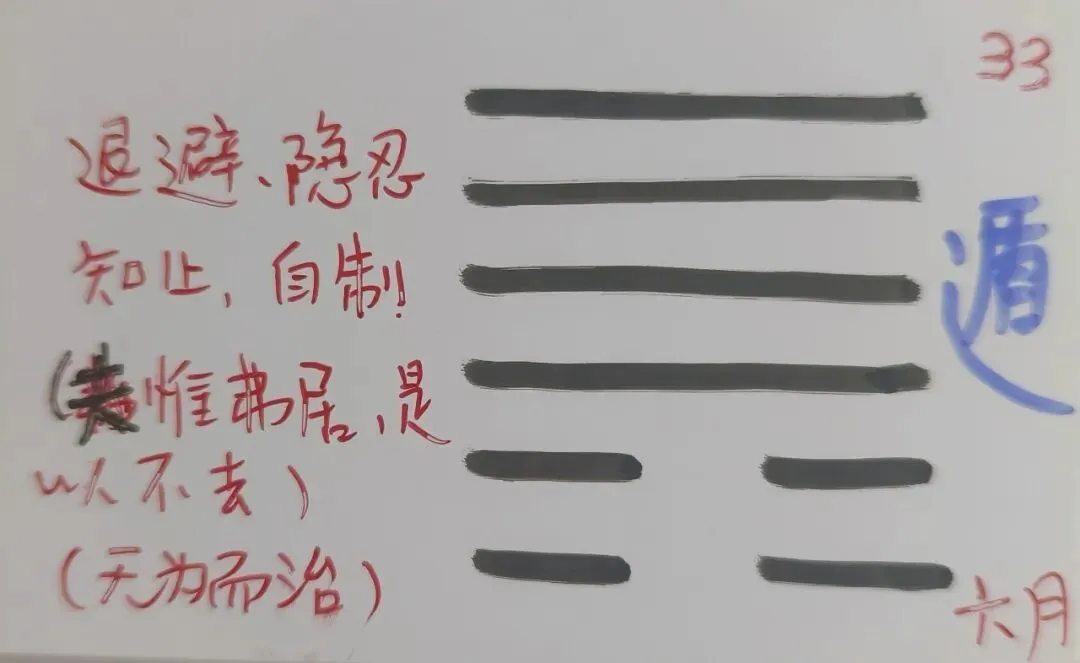 33
退避、隐忍
知止,自制!
(夫惟弗居,是
以不去)
(无为而治)
遁
六月